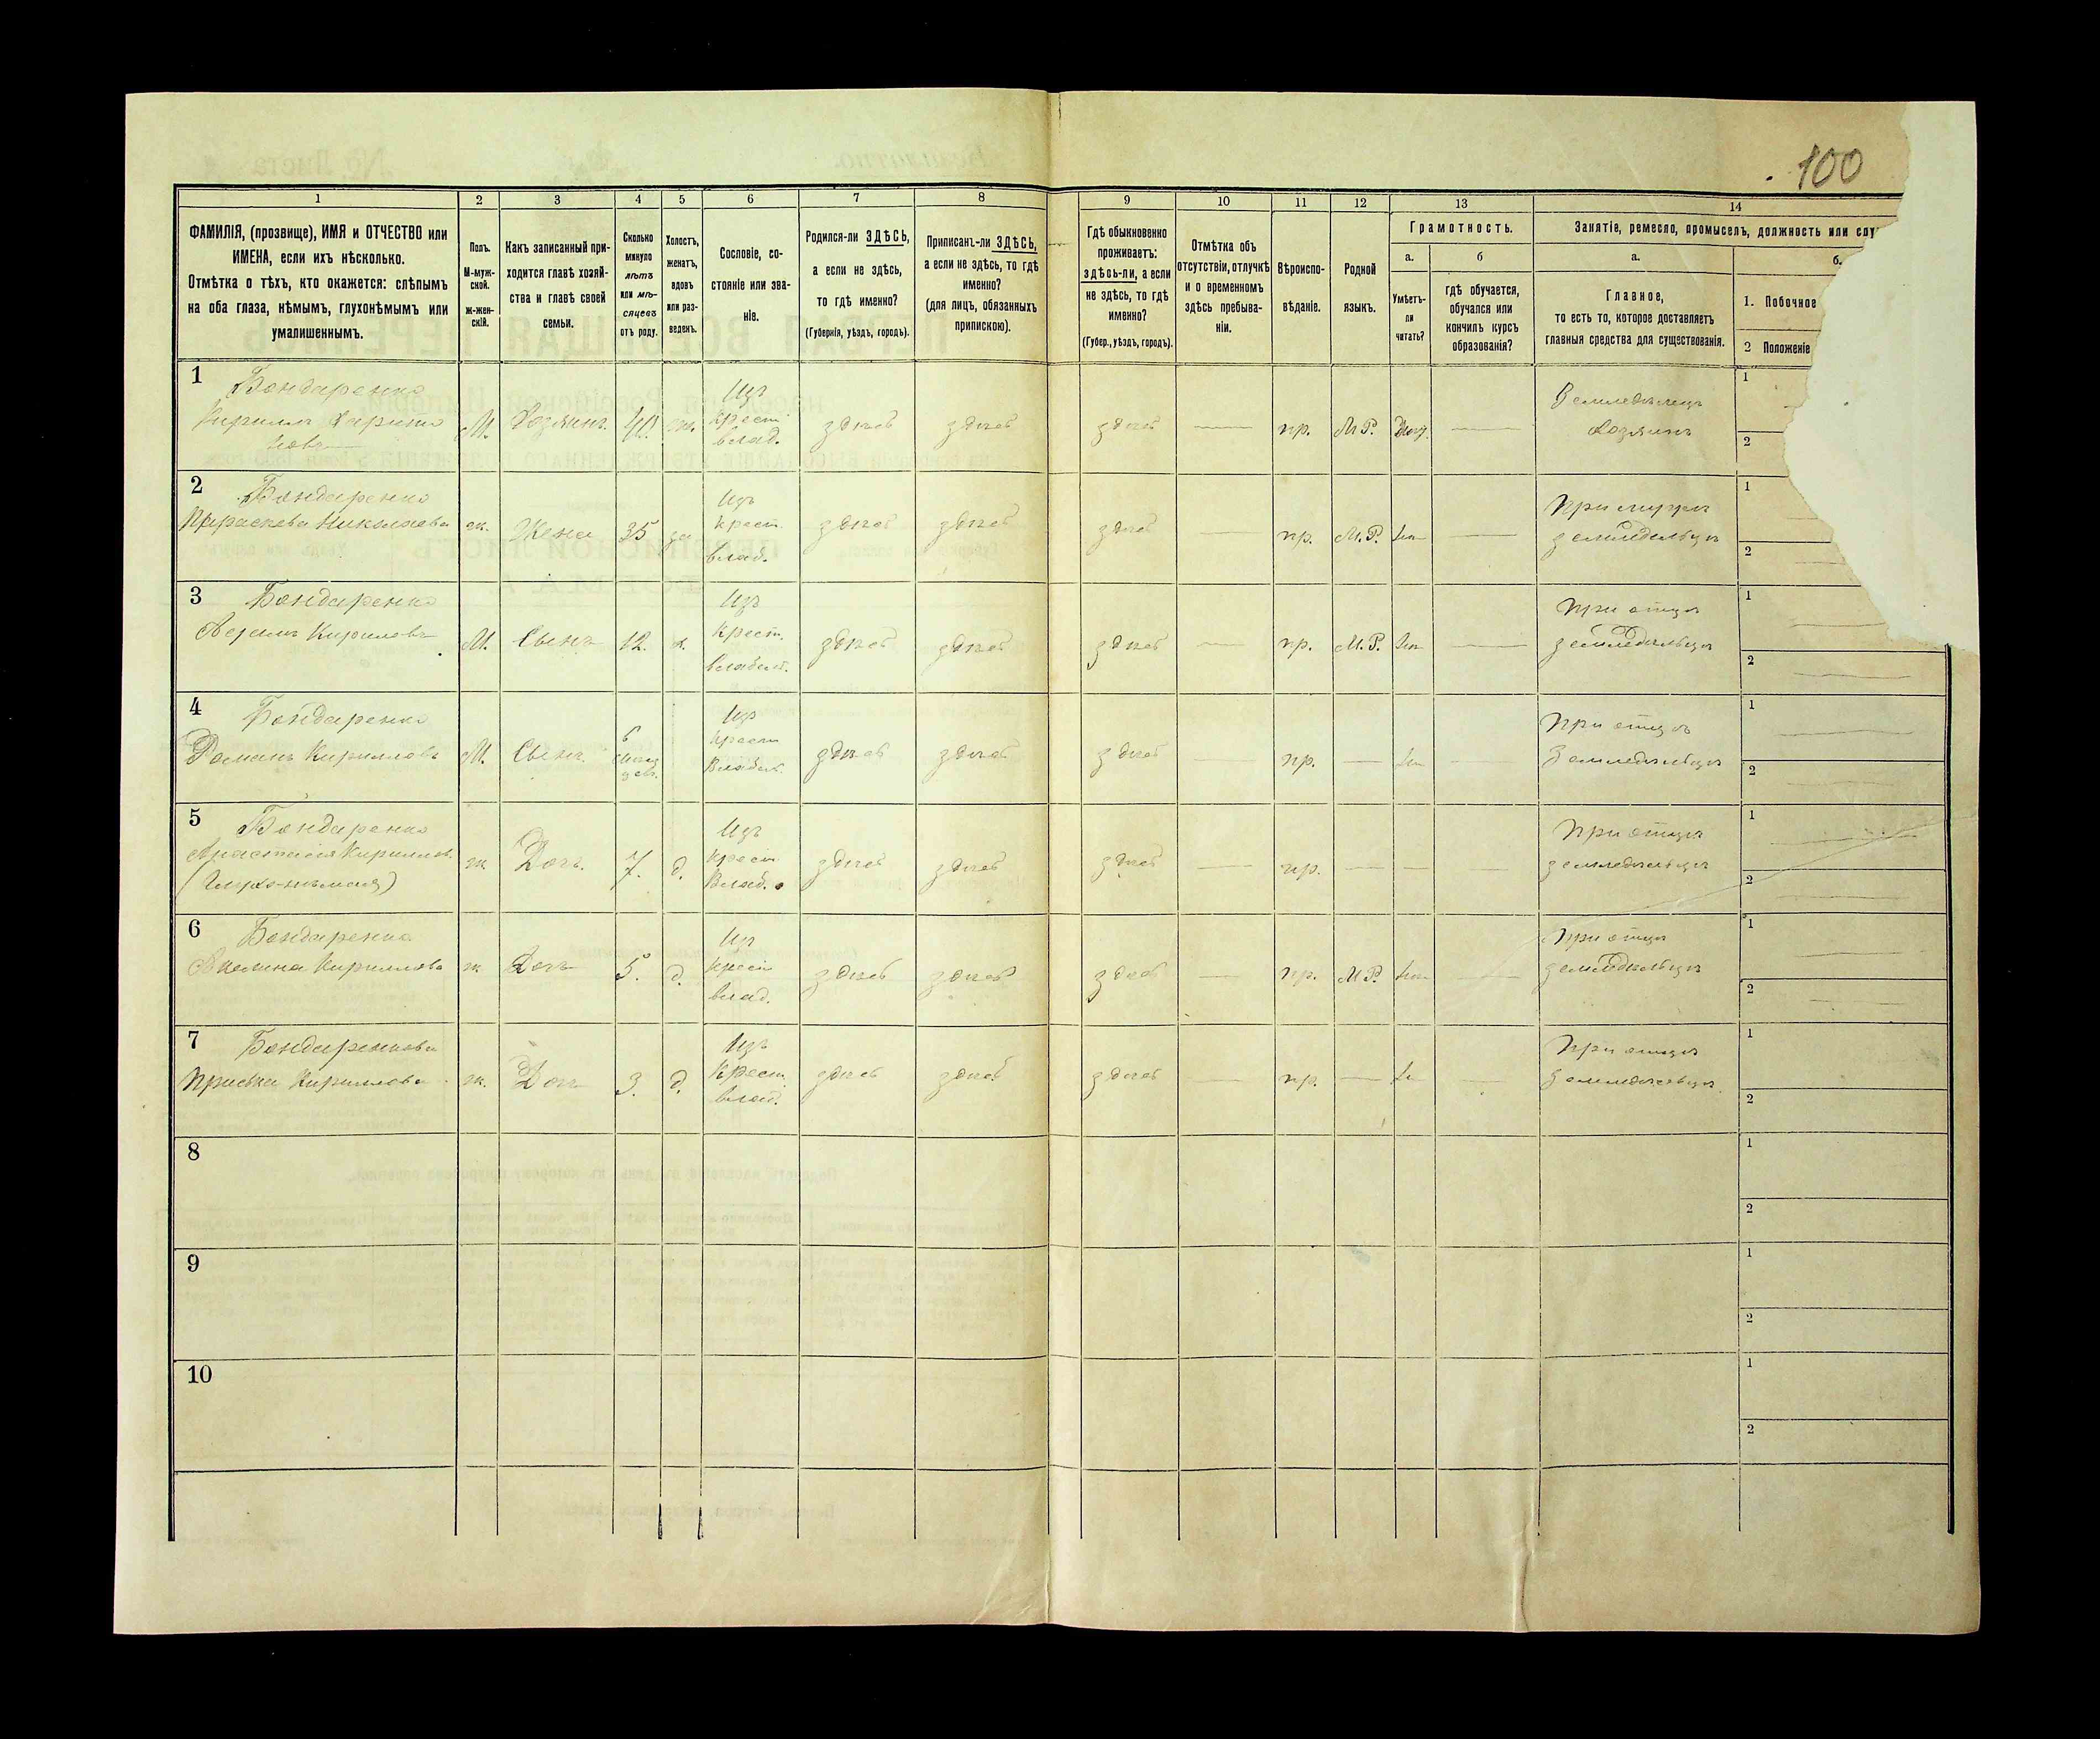 100
1 2 3 4 5 6 7 8 9 10 11 12 13 14
ФАМИЛІЯ, (прозвище), ИМЯ и ОТЧЕСТВО или
ИМЕНА, если ихъ нѣсколько.
Отмѣтка о тѣхъ, кто окажется: слѣпымъ
на оба глаза, нѣмымъ, глухонѣмымъ или
умалишеннымъ.
Полъ.
М-муж-
ской.
ж-жен-
скій.
Какъ записанный при-
ходится главѣ хозяй-
ства и главѣ своей
семьи.
Сколько
минуло
лѣтъ
или мѣ-
сяцевъ
отъ роду.
Холостъ,
женатъ,
вдовъ
или раз-
веденъ.
Сословіе, со-
стояніе или зва-
ніе.
Родился-ли ЗДѢСЬ,
а если не здѣсь,
то гдѣ именно?
(Губернія, уѣздъ, городъ).
Приписанъ-ли ЗДѢСЬ,
а если не здѣсь, то гдѣ
именно?
(для лицъ, обязанныхъ
припискою).
Гдѣ обыкновенно
проживаетъ:
здѣсь-ли, а если
не здѣсь, то гдѣ
именно?
(Губер., уѣздъ, городъ).
Отмѣтка объ
отсутствіи, отлучкѣ
и о временномъ
здѣсь пребыва-
ніи.
Вѣроиспо-
вѣданіе.
Родной
языкъ.
Грамотность.
а.
Умѣетъ-
ли
читать?
б
гдѣ обучается,
обучался или
кончилъ курсъ
образованія?
Занятіе, ремесло, промыселъ, должность или слу
а.
Главное,
то есть то, которое доставляетъ
главныя средства для существованія.
б.
1. Побочное
2 Положеніе
1 Бондаренко
Кириллъ
М. Хозяинъ 40 ж. Изъ
крест.
влад. здѣсь здѣсь здѣсь пр. М.Р. Земледѣлецъ
хозяинъ 1
2
2 Бондаренко
Параскева Николаева
ж. Жена 35 за Изъ
крест.
влад. здѣсь здѣсь здѣсь пр. М.Р. При мужѣ
земледѣльцѣ 1
2
3 Бондаренко
Кириловъ
М. Сынъ 12. х. Изъ
крест.
владѣл. здѣсь здѣсь здѣсь пр. М.Р. При отцѣ
земледѣльцѣ 1
2
4 Бондаренко
Романъ Кирилловъ
М. Сынъ. 6
мѣся
цевъ. Изъ
крест.
владѣл. здѣсь здѣсь здѣсь пр. При отцѣ
Земледѣльцѣ 1
2
5 Бондаренко
Анастасія Кириллов.
(Глухо-нѣмая)
ж. Дочь. 7. д. Изъ
крест.
Влад. здѣсь здѣсь здѣсь пр. При отцѣ
земледѣльцѣ 1
2
6 Бондаренко
Акелина Кириллова
ж. Дочь 5. д. Изъ
крест.
влад. здѣсь здѣсь здѣсь пр. М.Р. При отцѣ
земледѣльцѣ 1
2
7 Бондаренкова
Приська Кириллова
ж. Дочь 3. д. Изъ
крест.
влад. здѣсь здѣсь здѣсь пр. При отцѣ
Земледѣльцѣ 1
2
8 1
2
9 1
2
10 1
2